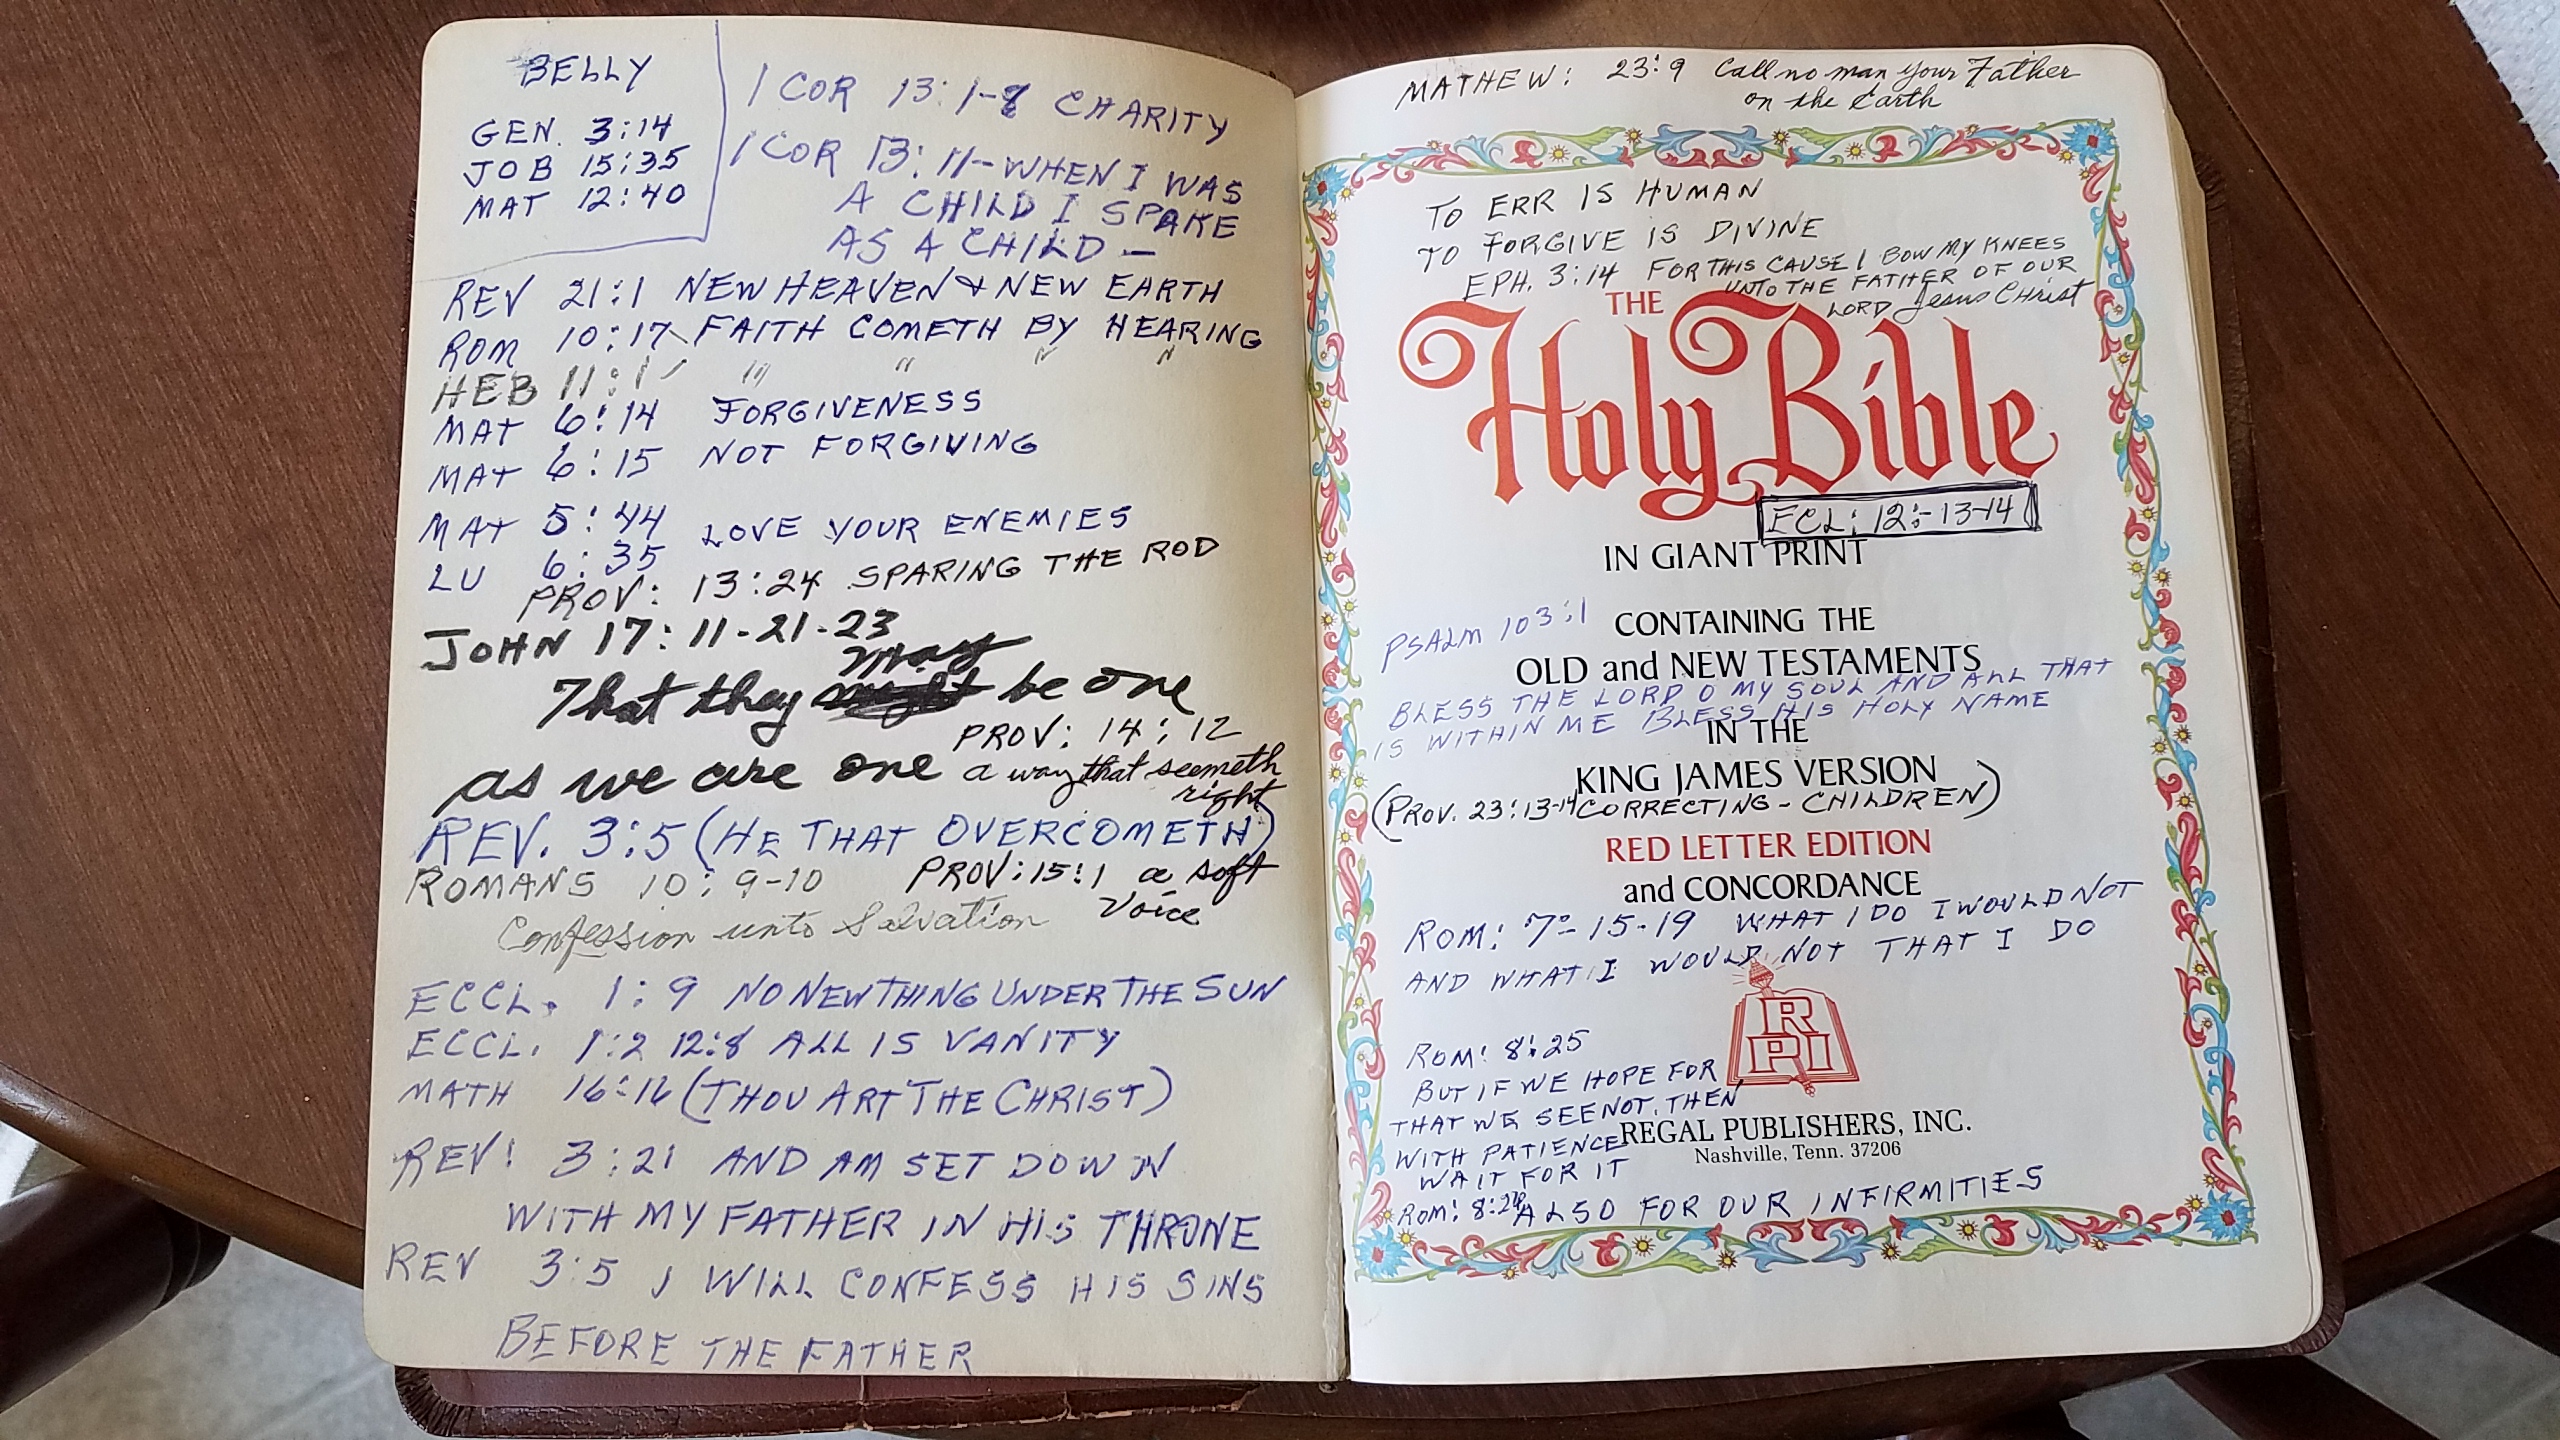 BELLY
GEN. 3:14
JOB 15:35
MAT 12:40
1 COR 13:1-8 CHARITY
1 COR 13:11-WHEN I WAS
A CHILD I SPAKE
AS A CHILD -
REV 21:1 NEW HEAVEN & NEW EARTH
ROM 10:17 FAITH COMETH BY HEARING
HEB 11:1 " " " "
MAT 6:14 FORGIVENESS
MAT 6:15 NOT FORGIVING
MAT 5:44 LOVE YOUR ENEMIES
LU 6:35
PROV: 13:24 SPARING THE ROD
JOHN 17:11-21-23
may
That they be one
as we are one
PROV: 14:12
a way that seemeth
right
REV. 3:5 (HE THAT OVERCOMETH)
ROMANS 10:9-10
Confession unto Salvation
PROV:15:1 a soft
Voice
ECCL. 1:9 NO NEW THING UNDER THE SUN
ECCL. 1:2 12:8 ALL IS VANITY
MATH 16:16 (THOU ART THE CHRIST)
REV: 3:21 AND AM SET DOWN
WITH MY FATHER IN HIS THRONE
REV 3:5 I WILL CONFESS HIS SINS
BEFORE THE FATHER
MATHEW: 23:9 Call no man your Father
on the Earth
TO ERR IS HUMAN
TO FORGIVE IS DIVINE
EPH. 3:14 FOR THIS CAUSE I BOW MY KNEES
UNTO THE FATHER OF OUR
LORD Jesus CHrist
THE
Holy Bible
ECL: 12:-13-14
IN GIANT PRINT
PSALM 103:1
CONTAINING THE
OLD and NEW TESTAMENTS
BLESS THE LORD O MY SOUL AND ALL THAT
IS WITHIN ME BLESS HIS HOLY NAME
IN THE
KING JAMES VERSION
(PROV. 23:13-14 CORRECTING - CHILDREN)
RED LETTER EDITION
and CONCORDANCE
ROM: 7-15-19 WHAT I DO I WOULD NOT
AND WHAT I WOULD NOT THAT I DO
R
PI
ROM: 8:25
BUT IF WE HOPE FOR
THAT WE SEE NOT, THEN
WITH PATIENCE
WAIT FOR IT
REGAL PUBLISHERS, INC.
Nashville, Tenn. 37206
ROM: 8:26 ALSO FOR OUR INFIRMITIES